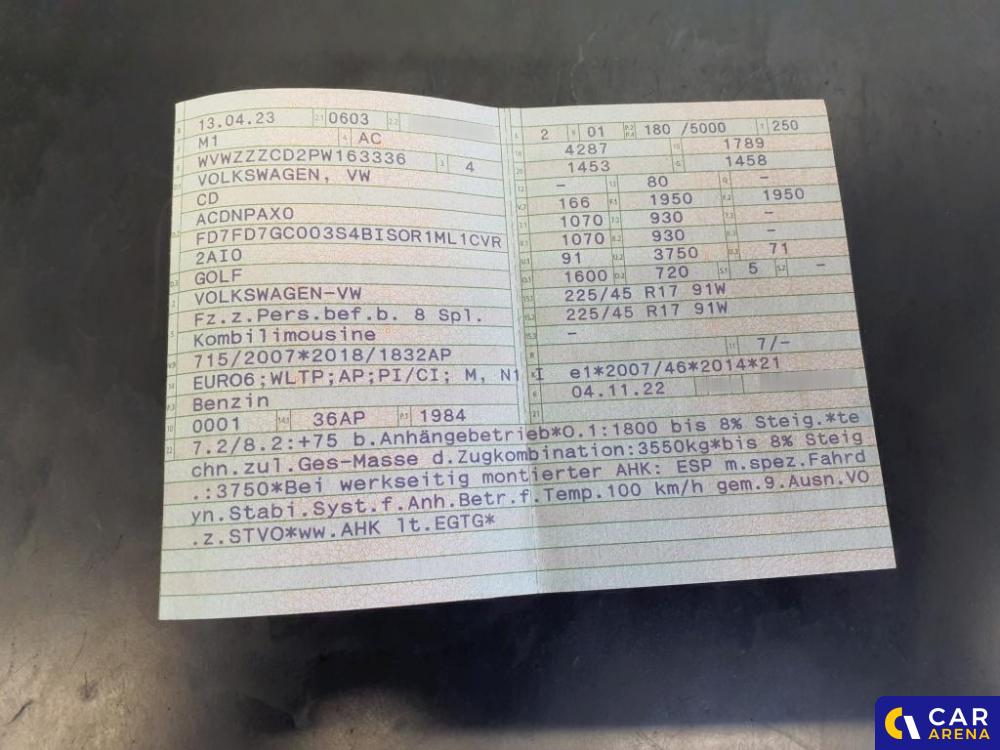 13.04.23 0603
M1 AC
WVWZZZCD2PW163336 4
VOLKSWAGEN, VW
CD
ACDNPAX0
FD7FD7GC003S4BISOR1ML1CVR
2AI0
GOLF
VOLKSWAGEN-VW
Fz.z.Pers.bef.b. 8 Spl.
Kombilimousine
715/2007*2018/1832AP
EURO6;WLTP;AP;PI/CI; M, N1 I
Benzin
0001 36AP 1984
2 01 180 /5000 250
4287 1789
1453 1458
- 80 -
166 1950 1950
1070 930 -
1070 930 -
91 3750 71
1600 720 5 -
225/45 R17 91W
225/45 R17 91W
-
7/-
e1*2007/46*2014*21
04.11.22
7.2/8.2:+75 b.Anhängebetrieb*O.1:1800 bis 8% Steig.*te
chn.zul.Ges-Masse d.Zugkombination:3550kg*bis 8% Steig
.:3750*Bei werkseitig montierter AHK: ESP m.spez.Fahrd
yn.Stabi.Syst.f.Anh.Betr.f.Temp.100 km/h gem.9.Ausn.VO
.z.STVO*ww.AHK lt.EGTG*
CAR
ARENA